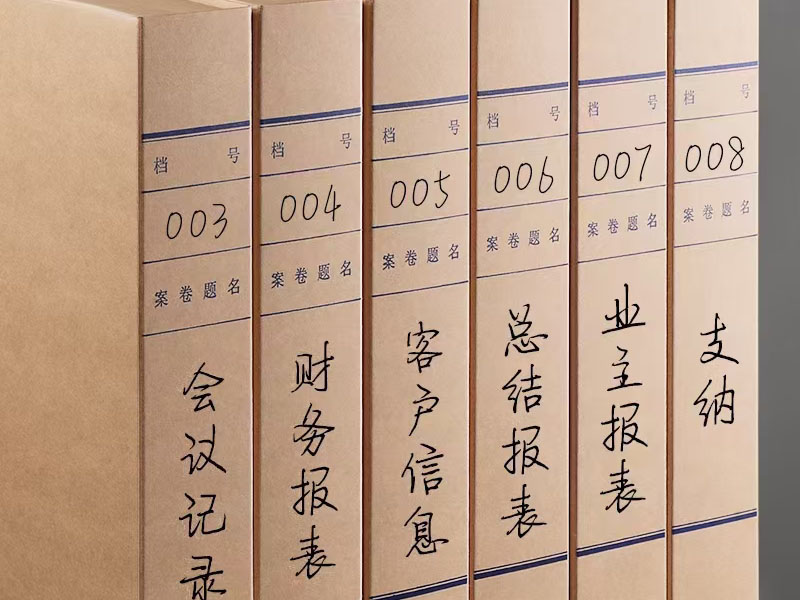 档 号
003
案卷题名
会议记录
档 号
004
案卷题名
财务报表
档 号
005
案卷题名
客户信息
档 号
006
案卷题名
总结报表
档 号
007
案卷题名
业主报表
档 号
008
案卷题名
支纳